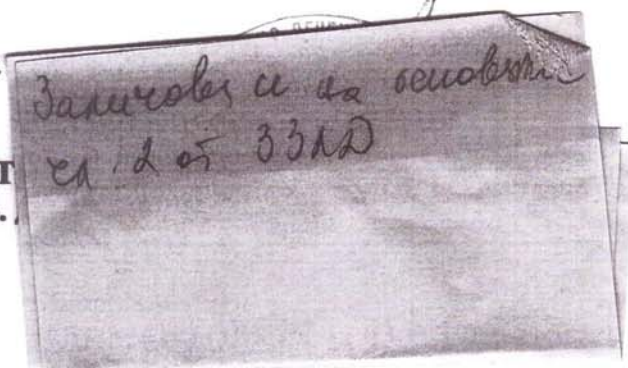 Заличава се на основание
чл. 2 от ЗЗЛД